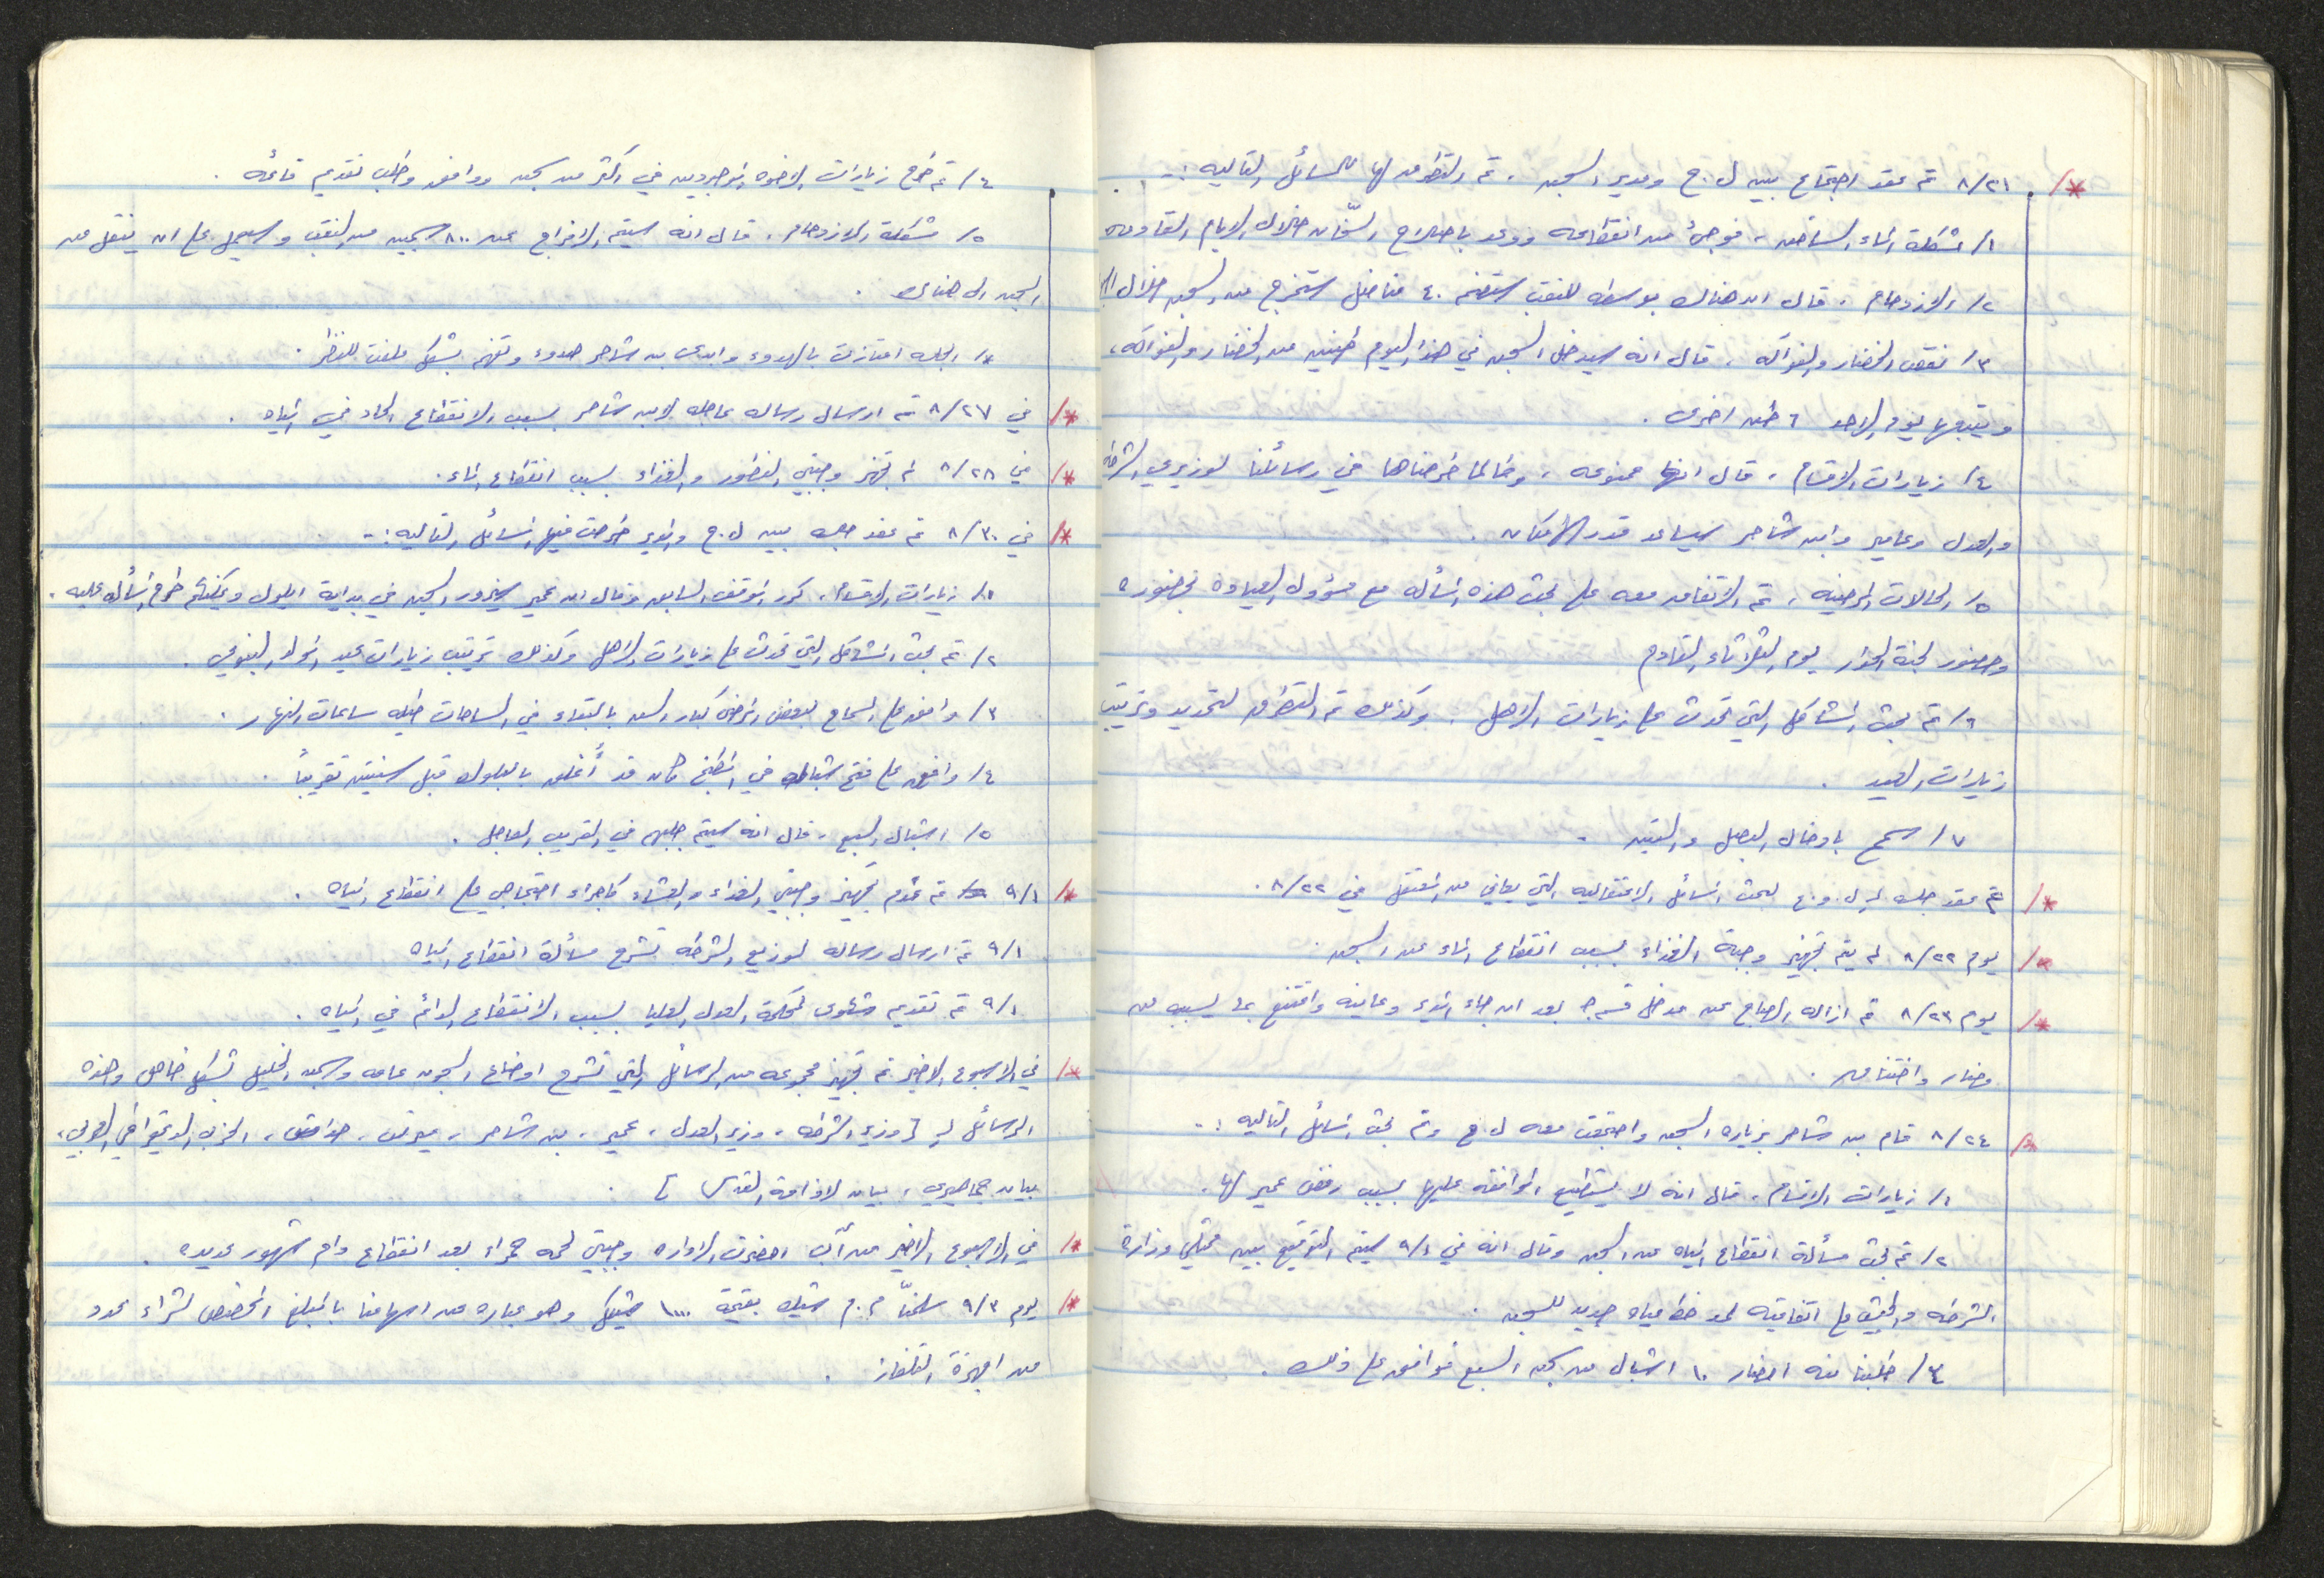 */ ٨/٢١ تم عقد اجتماع بين ل.ح ومدير السجن . تم التطرق لها للمسائل التاليه :-
١/ مشكلة الماء الساخن ، فوجئ من انقطاعه ووعد باصلاح السخّان خلال الايام القادمه
٢/ الازدحام . قال ان هناك بوسطه للنقب ستضم ٤٠ مناضل ستخرج من السجن خلال
٣/ نقص الخضار والفواكه ، قال انه سيدخل السجن في هذا اليوم طنين من الخضار والفواكه ،
ويتبعها يوم الاحد ٦ طن اخرى .
٤/ زيارات الاقسام ، قال انها ممنوعه ، وطالما طرحناها في رسائلنا لوزيري الشرطه
والعدل وعامير وابن شاحر سيساعد قدر الامكان .
٥/ الحالات المرضيه ، تم الاتفاق معه على بحث هذه المسأله مع مسؤول العيادة بحضوره
وحضور لجنة الحوار يوم الثلاثاء القادم
٦/ تم بحث المشاكل التي تحدث على زيارات الاهل . وكذلك تم التطرق لتمديد وترتيب
زيارات العيد .
٧/ سمح بادخال البصل والتين .
*/ تم عقد جلسه لـ ل.و.ع لبحث المسائل الاعتقاليه التي يعاني منها المعتقل في ٨/٢٢ .
*/ يوم ٨/٢٢ لم يتم تجهيز وجبة الغداء بسبب انقطاع الماء عن السجن .
*/ يوم ٨/٢٣ تم ازالة الصاج عن مدخل قسم ج بعد ان جاء المدير وعاينه واقتنع بما يسببه من
مضار واختناق .
*/ ٨/٢٤ قام بن شاحر بزيارة السجن واجتمعت معه ل.ح وتم بحث المسائل التاليه :-
١/ زيارات الاقسام ، قال انه لا يستطيع الموافقه عليها بسبب رفض عمير لها .
٢/ تم بحث مسألة انقطاع المياه عن السجن وقال انه في ٩/١ سيتم التوقيع بين ممثلي وزارة
الشرطه والجيش على اتفاقيه لمد خط مياه جديد للسجن .
٣/ طلبنا منه احضار ١٠ اشبال من سجن السبع فوافق على ذلك .
٤/ تم طرح زيارات الاخوه الموجودين في اكثر من سجن ووافق وطلب تقديم قائمه .
٥/ مشكلة الازدحام . قال انه سيتم الافراج عن ٨٠٠ سجين من النقب وسيعمل على ان ينقل من
السجن الى هناك .
*/ الجلسه امتازت بالهدوء وابدى بن شاحر هدوء وتفهم بشكل ملفت للنظر .
*/ في ٨/٢٧ تم ارسال رساله عاجله لابن شاحر بسبب الانقطاع الحاد في المياه .
*/ في ٨/٢٨ لم تجهز وجبتي الفطور والغداء بسبب انقطاع الماء .
*/ في ٨/٣٠ تم عقد جلسه بين ل.ح والمدير طرحت فيها المسائل التاليه :-
١/ زيارات الاقسام ، كرر الموقف السابق وقال ان عمير سيزور السجن في بداية ايلول ويمكنكم طرح المسأله عليه .
٢/ تم بحث المشاكل التي تحدث على زيارات الاهل وكذلك ترتيب زيارات عيد المولد النبوي .
٣/ وافق على السماح لبعض المرضى كبار السن بالبقاء في الساحات طيلة ساعات النهار .
٤/ وافق على فتح شباك في المطبخ كان قد أُغلق بالبلوك قبل سنتين تقريباً .
٥/ اشبال السبع ، قال انه سيتم جلبهم في القريب العاجل .
*/ ٩/١ تم عدم تجهيز وجبتي الغداء والعشاء كاجراء احتجاجي على انقطاع المياه .
٩/١ تم ارسال رساله لوزير الشرطه تشرح مسألة انقطاع المياه
٩/١ تم تقديم شكوى لمحكمة العدل العليا بسبب الانقطاع الدائم في المياه .
*/ في الاسبوع الاخير تم تجهيز مجموعه من الرسائل التي تشرح اوضاع السجون عامه وسجن الخليل بشكل خاص وهذه
الرسائل لـ [ وزير الشرطه ، وزير العدل ، عمير ، بن شاحر ، ميرتس ، حداش ، الحزب الديمقراطي العربي ،
بيان جماهيري ، بيان لاذاعة القدس ] .
*/ في الاسبوع الاخير من آب احضرت الاداره وجبتي لحمه حمراء بعد انقطاع دام شهور عديده .
*/ يوم ٩/٣ سلمنّا م.م شيك بقيمة ١٠٠٠٠ شيكل وهو عباره عن اسهامنا بالمبلغ المخصص لشراء عدد
من اجهزة التلفاز .